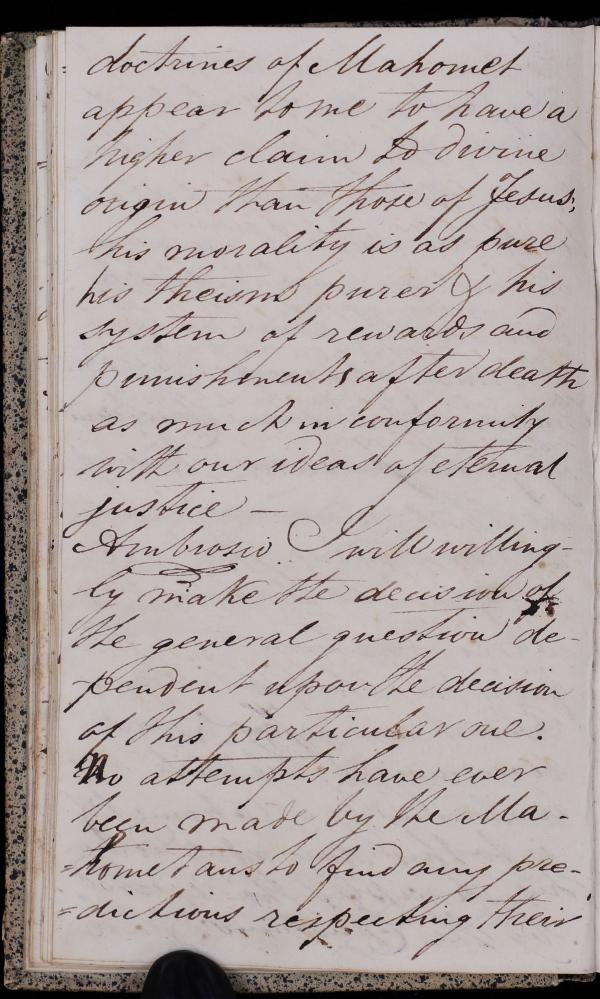 doctrines of Mahomet
appear to me to have a
higher claim to divine
origin than those of Jesus;
his morality is as pure
his theism purer & his
system of rewards and
punishments after death
as much in conformity
with our ideas of eternal
justice —
Ambrosio I will willing-
ly make the decision of
the general question de-
-pendent upon the decision
of this particular one.
No attempts have ever
been made by the Ma-
=hometans to find any pre-
=dictions respecting their